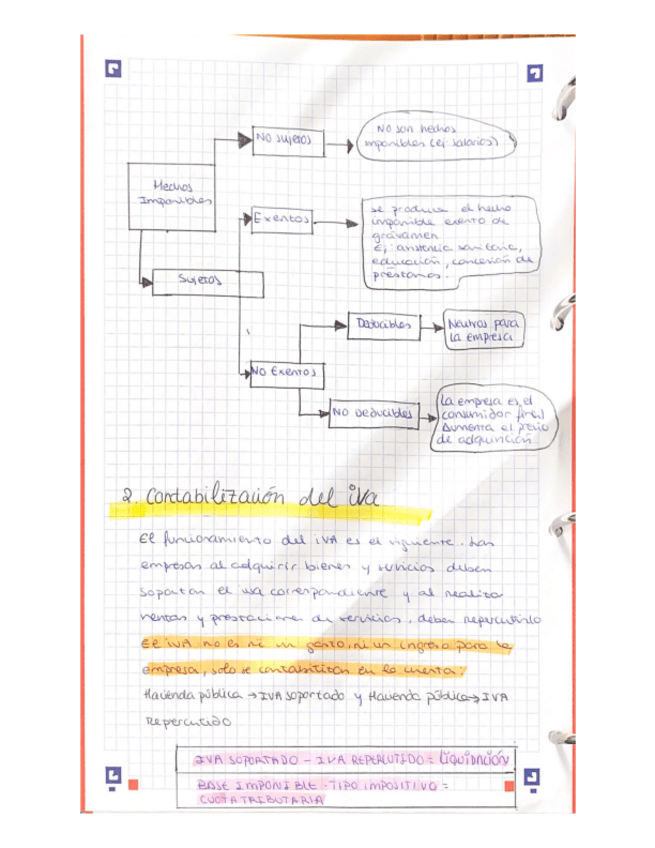 NO sujetos
NO son hechos
imponibles (ej salarios).
Hechos
Imponibles
Exentos
se produce el hecho
imponible exento de
gravamen
Ej: asistencia sanitaria,
educación, concesión de
préstamos.
Sujetos
Deducibles
Neutros para
la empresa
NO Exentos
NO Deducibles
La empresa es el
consumidor final
Aumenta el precio
de adquisición
2. Contabilización del iva
El funcionamiento del IVA es el siguiente. Las
empresas al adquirir bienes y servicios deben
soportar el iva correspondiente y al realizar
ventas y prestaciones de servicios, deben repercutirlo
El IVA no es ni un gasto, ni un ingreso para la
empresa, solo se contabilizan en la cuenta:
Hacienda pública → IVA soportado y Hacienda pública → IVA
Repercutido
IVA SOPORTADO - IVA REPERCUTIDO = Liquidación
BASE IMPONIBLE · TIPO IMPOSITIVO =
CUOTA TRIBUTARIA